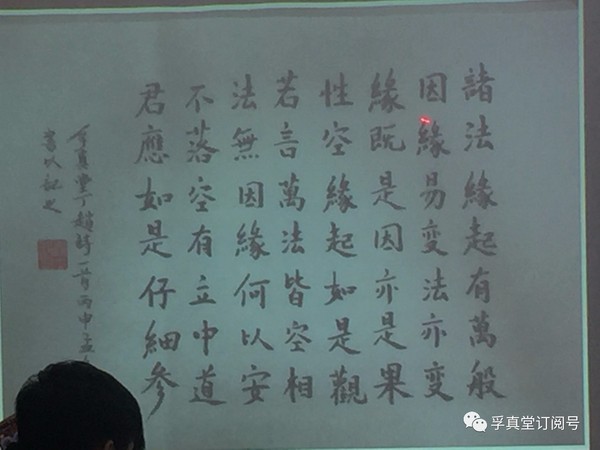 諸法緣起有萬般
因緣易變法亦變
緣既是因亦是果
性空緣起如是觀
若言萬法皆空相
法無因緣何以安
不落空有立中道
君應如是仔細參
孚真堂 一首丙申孟
書以記之
孚真堂订阅号